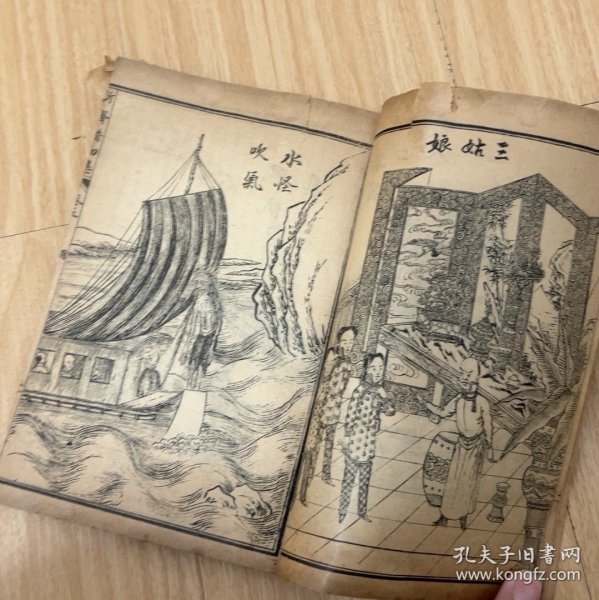 三姑娘
水怪
吹氣
孔夫子旧書网
www.kongfz.com